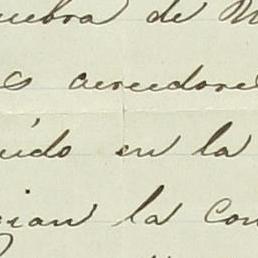 uebra de
acreedore
uido en la
cian la con